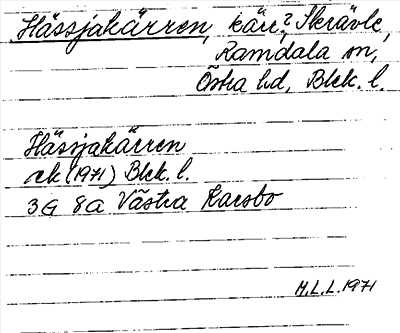 Hässjakärren, kärr? Skrävle,
Ramdala sn,
Östra hd, Blek. l.
Hässjakärren
ek (1971) Blek. l.
3G 8a Västra Karsbo
M.L.L. 1971